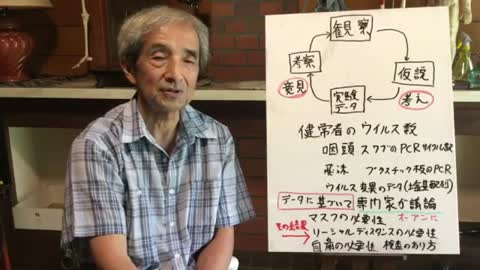 観察
考察
仮説
意見
実験
データ
考え
健常者のウイルス数
咽頭スワブのPCRサイクル数
飛沫 プラスチック板のPCR
ウイルス変異のデータ(塩基配列)
データに基づいて専門家が議論
マスクの必要性 オープンに
その結果
ソーシャルディスタンスの必要性
自粛の必要性 検査のあり方